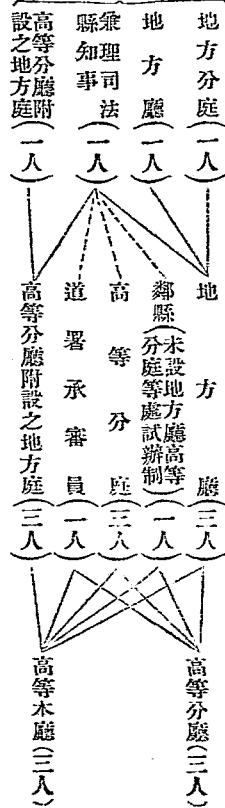 地方分庭(一人)
地方廳(一人)
兼理司法
縣知事(一人)
高等分廳附
設之地方庭(一人)
地方廳(三人)
鄰縣(未設地方廳高等
分庭等處試辦制)(一人)
高等分庭(三人)
道署承審員(一人)
高等分廳附設之地方庭(三人)
高等分廳(三人)
高等本廳(三人)